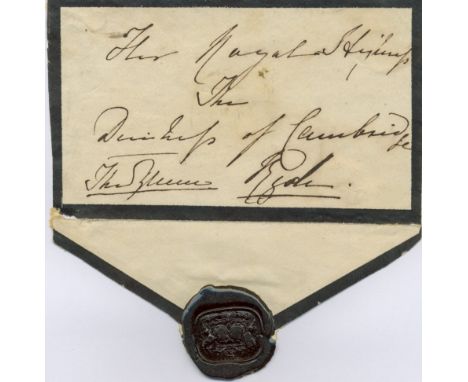 Her Royal Highness
The
Duchess of Cambridge
The Queen Ryde.